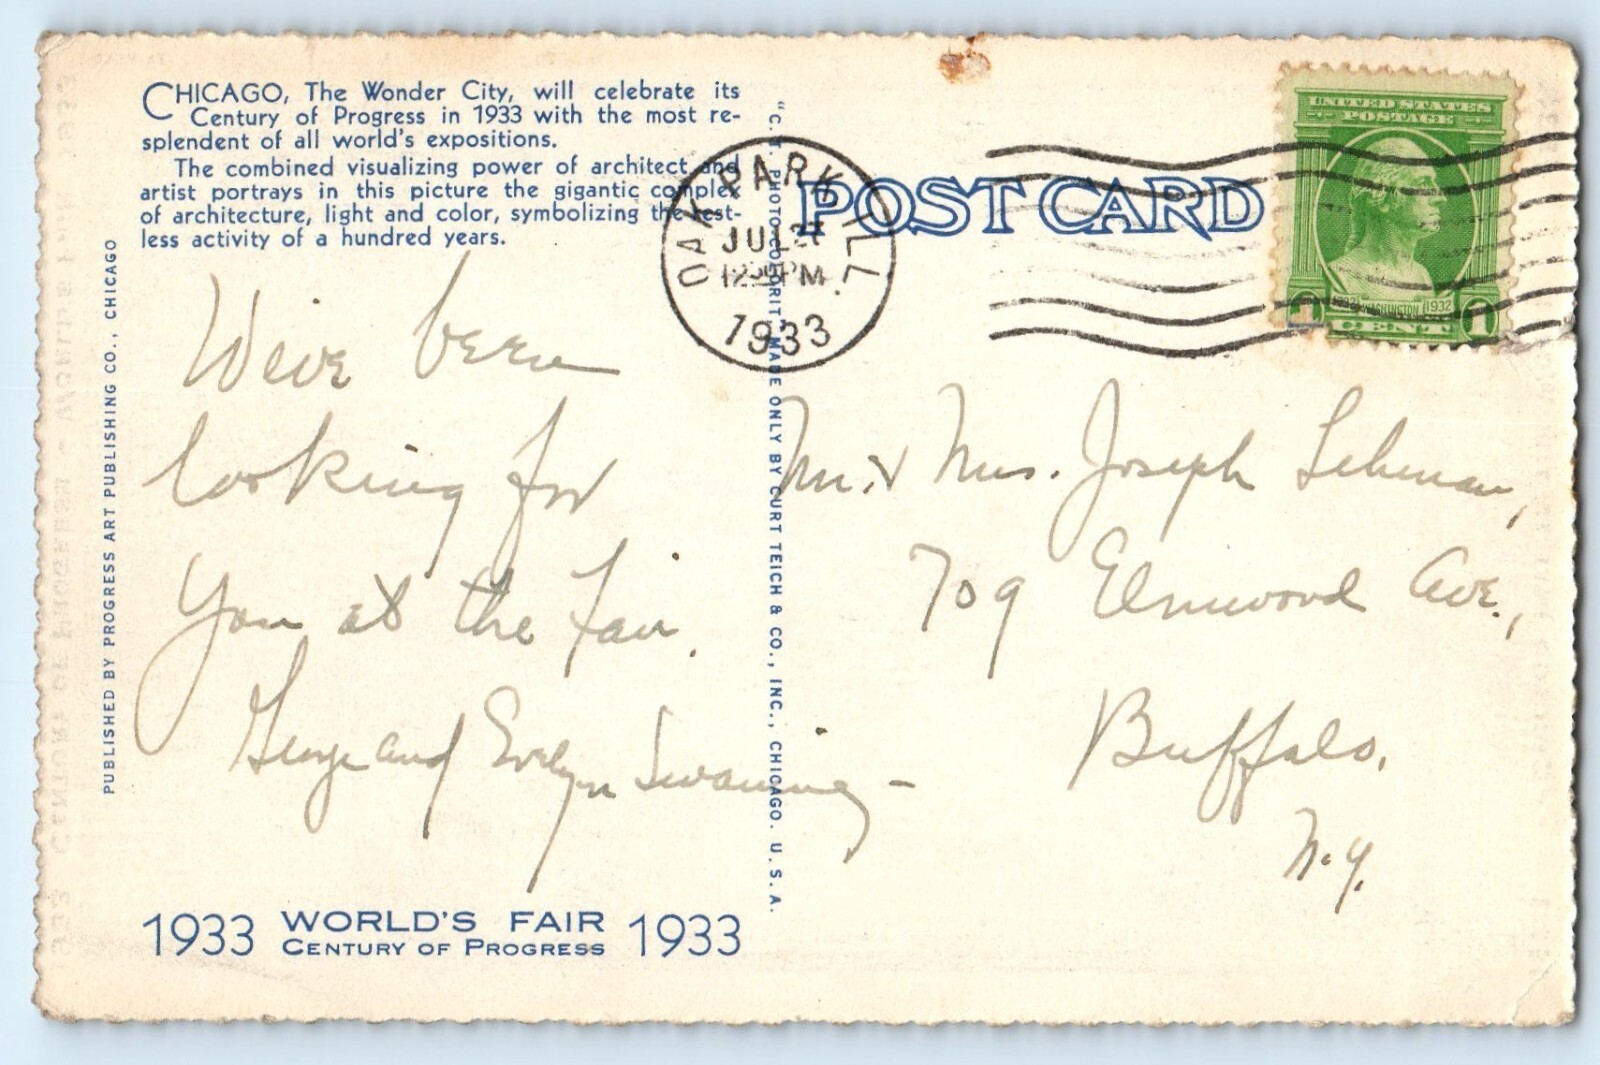 CHICAGO, The Wonder City, will celebrate its
Century of Progress in 1933 with the most re-
splendent of all world's expositions.
The combined visualizing power of architect and
artist portrays in this picture the gigantic complex
of architecture, light and color, symbolizing the rest-
less activity of a hundred years.
PUBLISHED BY PROGRESS ART PUBLISHING CO., CHICAGO
We've been
looking for
you at the Fair.
George and Evelyn
1933 WORLD'S FAIR 1933
CENTURY OF PROGRESS
"C. T. PHOTO COLORIT" MADE ONLY BY CURT TEICH & CO., INC., CHICAGO. U. S. A.
OAK PARK ILL
JUL
PM
1933
POST CARD
UNITED STATES
POSTAGE
1732 WASHINGTON 1932
1 CENT 1
Mr. & Mrs. Joseph Lehman,
709 Elmwood Ave.,
Buffalo,
N.Y.